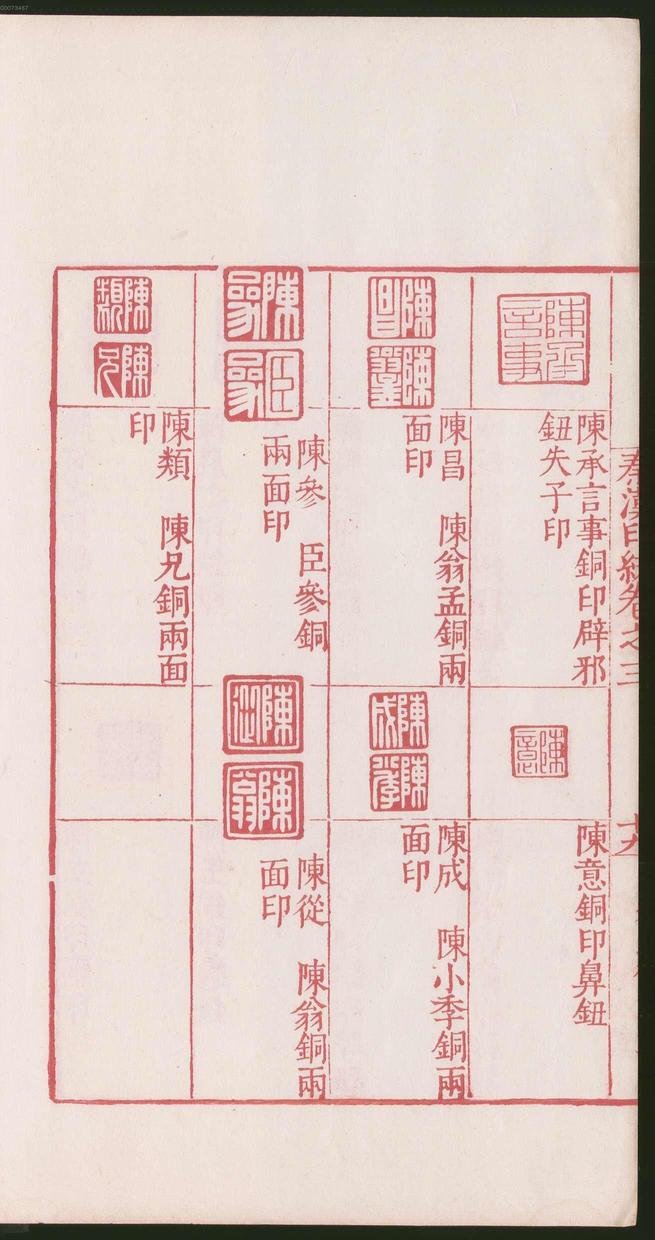 00073467
秦漢印統卷之三
陳承言事
陳承言事銅印辟邪
鈕失子印
陳意
陳意銅印鼻鈕
陳昌
陳翁孟
陳昌　陳翁孟銅兩
面印
陳成
陳小季
陳成　陳小季銅兩
面印
陳參
臣參
陳參　臣參銅
兩面印
陳從
陳翁
陳從　陳翁銅兩
面印
陳類
陳兄
陳類　陳兄銅兩面
印